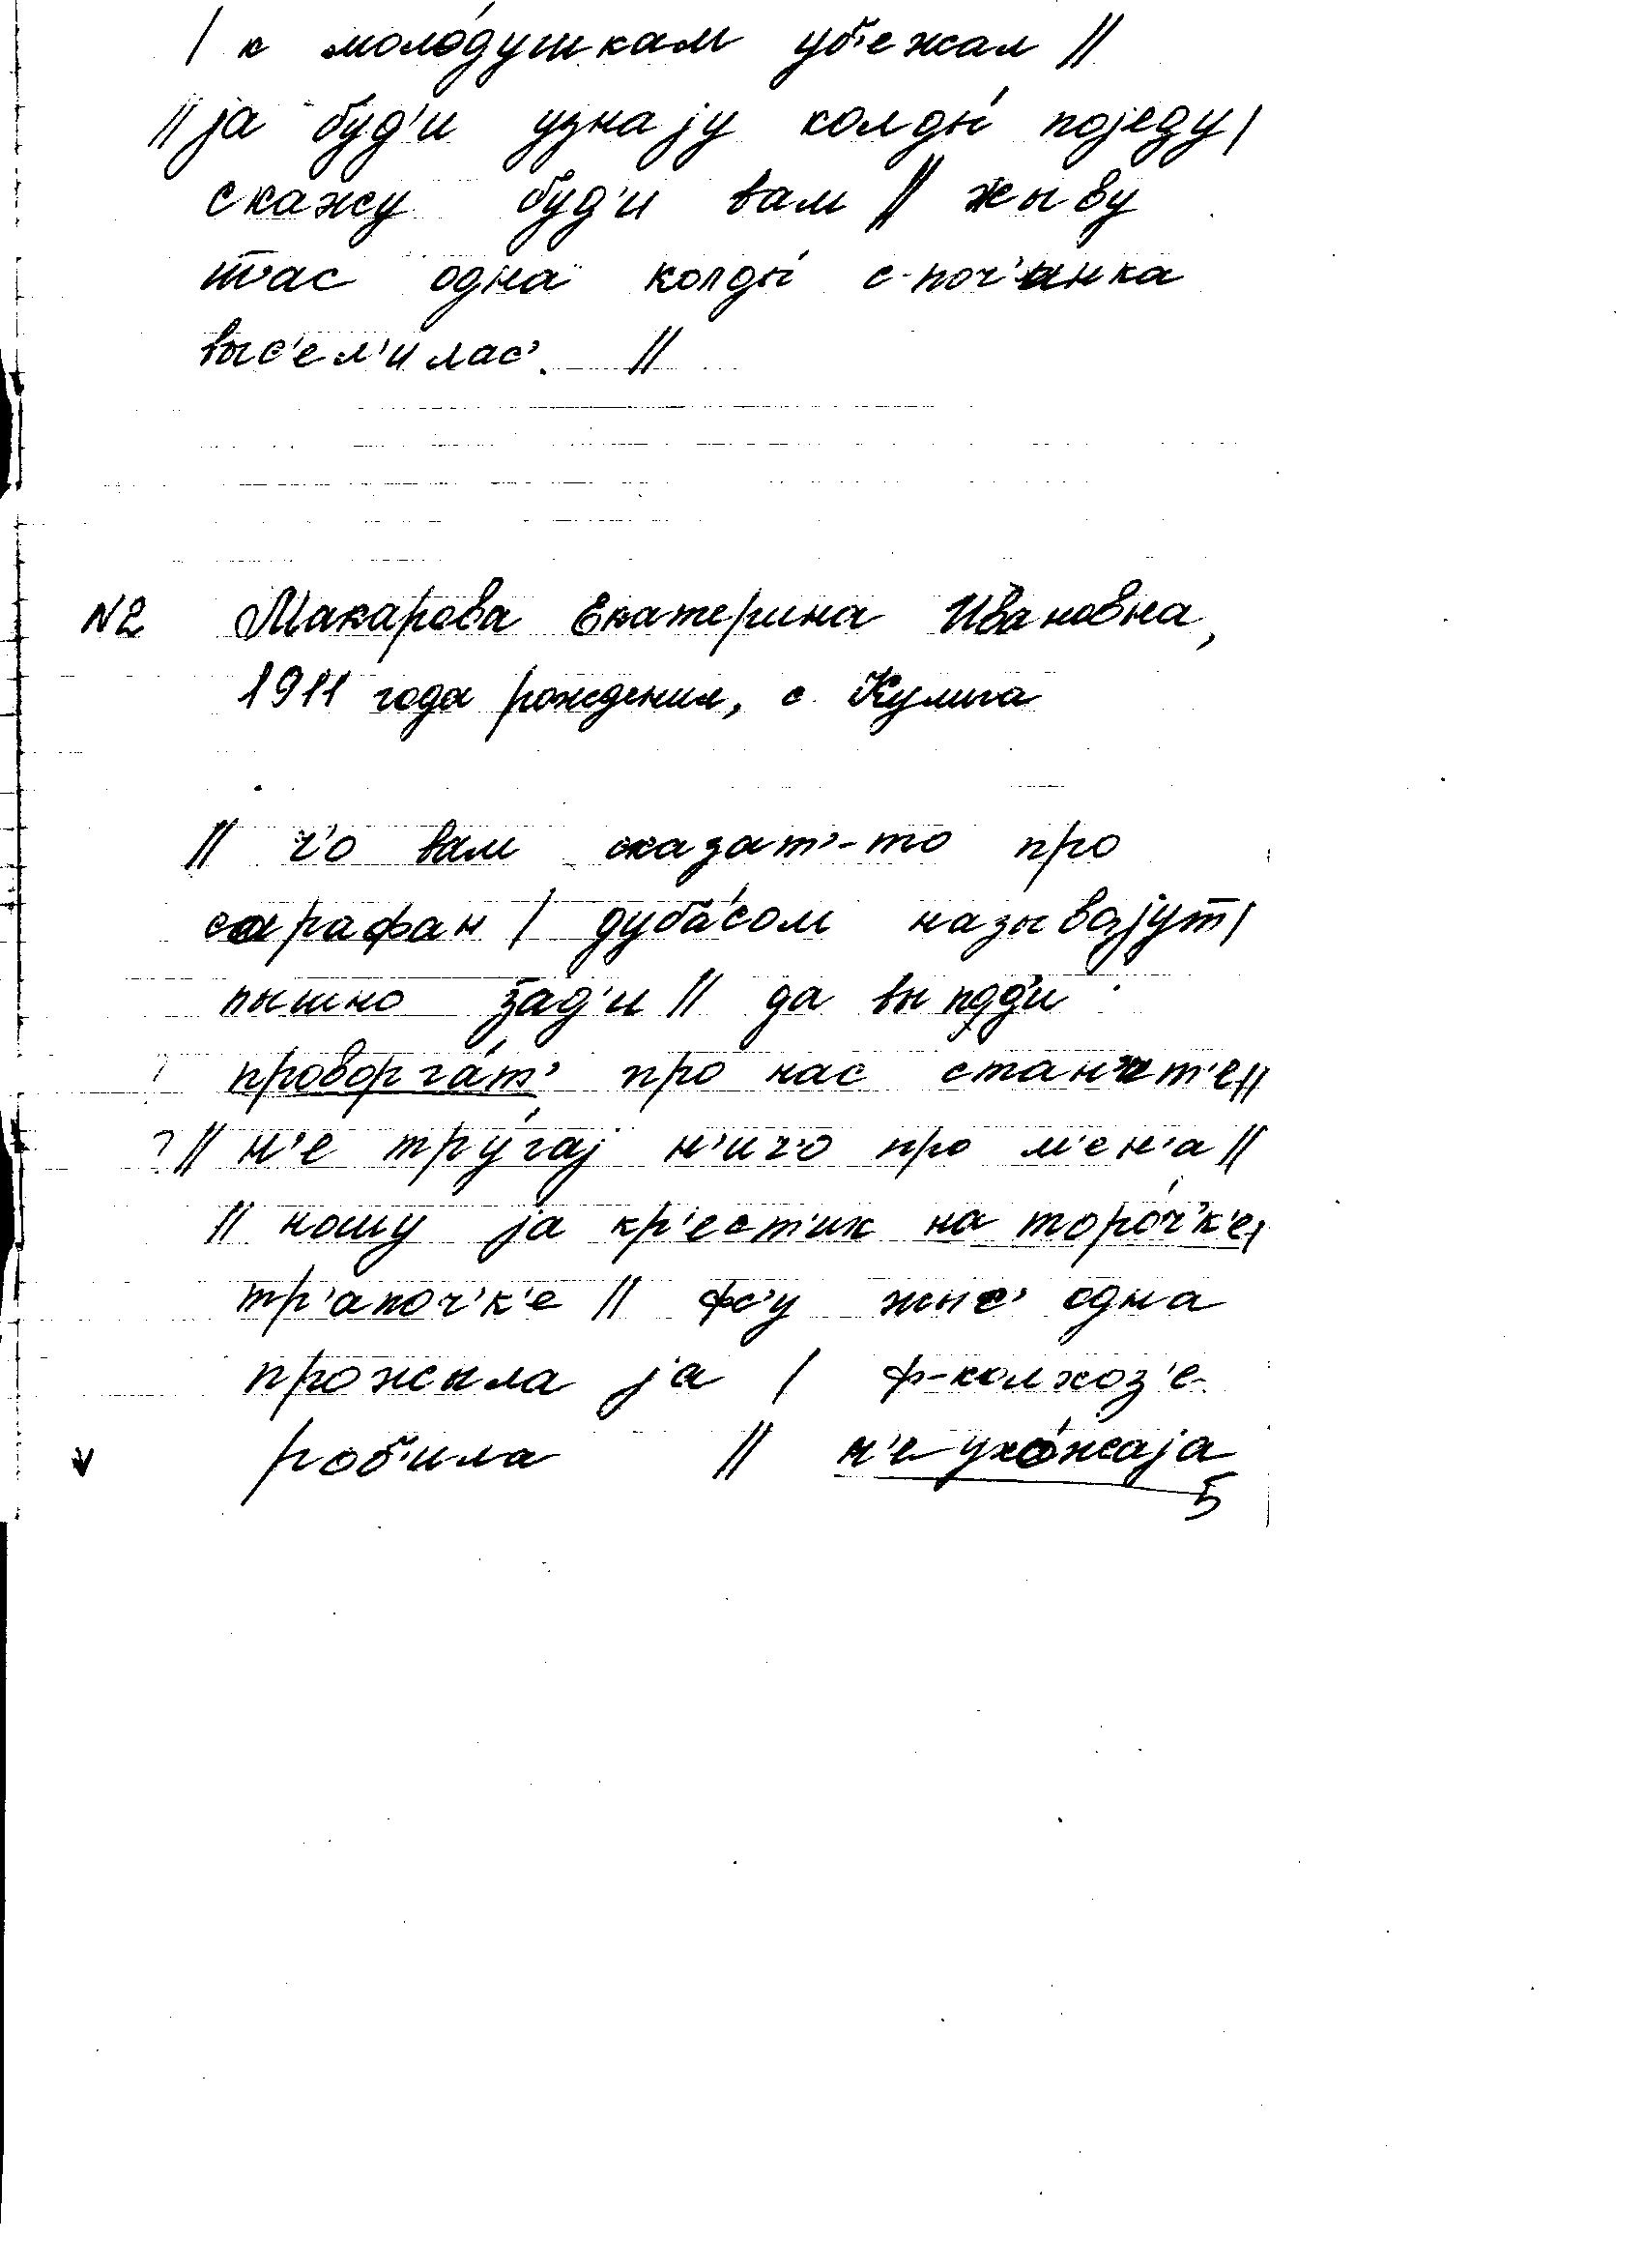 | к моло́душкам уб'ежал ||
|| jа буд'и узнаjу колды́ поjеду |
скажу буд'и вам || жыву
т'ас одна колды́ с-поч'инка
выс'ел'илас' ||
N2 Макарова Екатерина Ивановна,
1911 года рождения, с Кулига
|| ч'о вам сказат'-то про
сарафан | дуба́сом называjут |
пышно зад'и || да вы поди
? проворга́т' про нас станет'е ||
? || н'е тру́гаj н'ич'о про м'ен'а ||
|| ношу jа кр'ест'ик на торо́ч'к'е |
тр'апоч'к'е || фс'у жыс' одна
прожыла jа | ф-колхоз'е
роб'ила || н'е ухо́жаjа
5